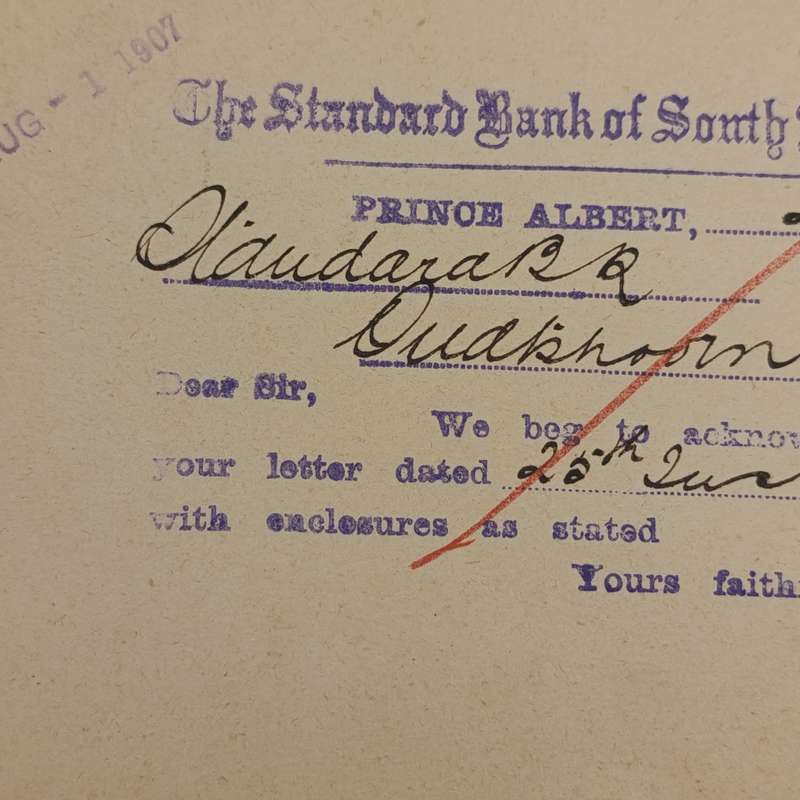 AUG - 1 1907
The Standard Bank of South
PRINCE ALBERT,
Standard Bk
Oudtshoorn
Dear Sir,
We beg to acknow
your letter dated 25th Inst
with enclosures as stated
Yours faith